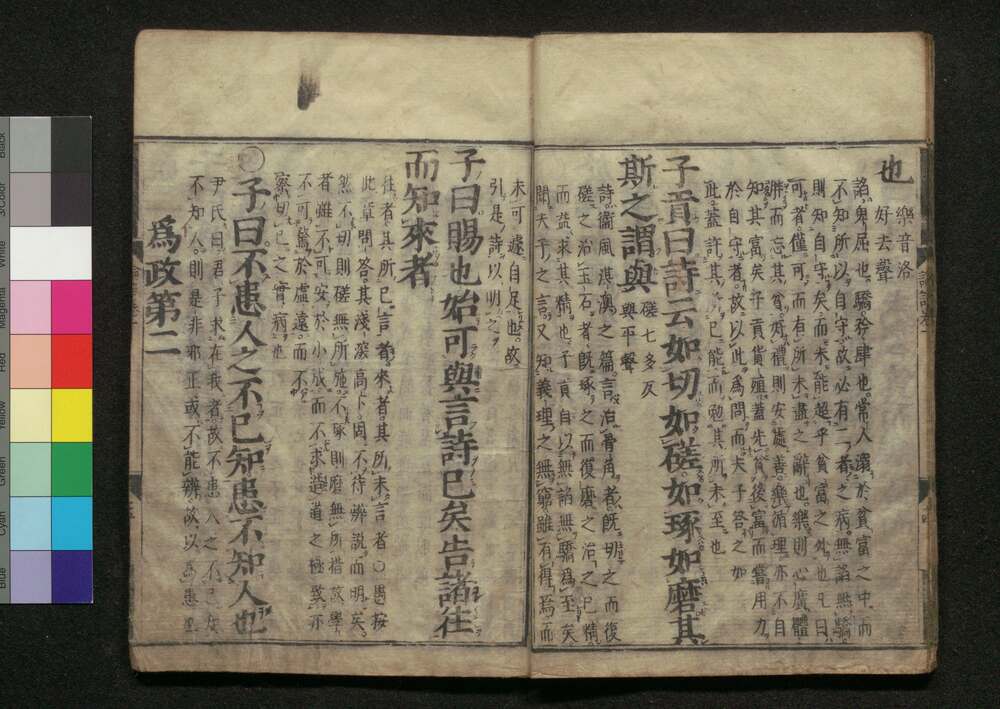 也
樂音洛
好去聲
諂卑屈也驕矜肆也常人溺於貧富之中而
不知所以自守故必有二者之病無諂無驕
則知自守矣而未能超乎貧富之外也凡曰
可者僅可而有所未盡之辭也樂則心廣體
胖而忘其貧好禮則安處善樂循理亦不自
知其富矣子貢貨殖蓋先貧後富而嘗用力
於自守者故以此為問而夫子答之如
此蓋許其所已能而勉其所未至也
子貢曰詩云如切如磋如琢如磨其
斯之謂與
磋七多反
與平聲
詩衛風淇澳之篇言治骨角者既切之而復
磋之治玉石者既琢之而復磨之治之已精
而益求其精也子貢自以無諂無驕為至矣
聞夫子之言又知義理之無窮雖有得焉而
未可遽自足也故
引是詩以明之
子曰賜也始可與言詩已矣告諸往
而知來者
往者其所已言者來者其所未言者○愚按
此章問答其淺深高下固不待辨說而明矣
然不切則磋無所施不琢則磨無所措故學
者雖不可安於小成而不求造道之極致亦
不可騖於虛遠而不
察切己之實病也
○子曰不患人之不己知患不知人也
尹氏曰君子求在我者故不患人之不己知
不知人則是非邪正或不能辨故以為患也
爲政第二